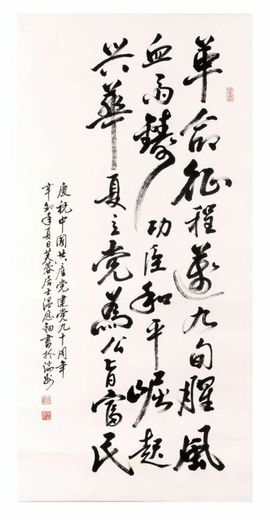 革命征程邁九旬腥風
血雨鑄功臣和平崛起
兴華夏立党為公旨富民
慶祝中國共产党建党九十周年
辛卯年夏日芙蓉居士恩書於瑞